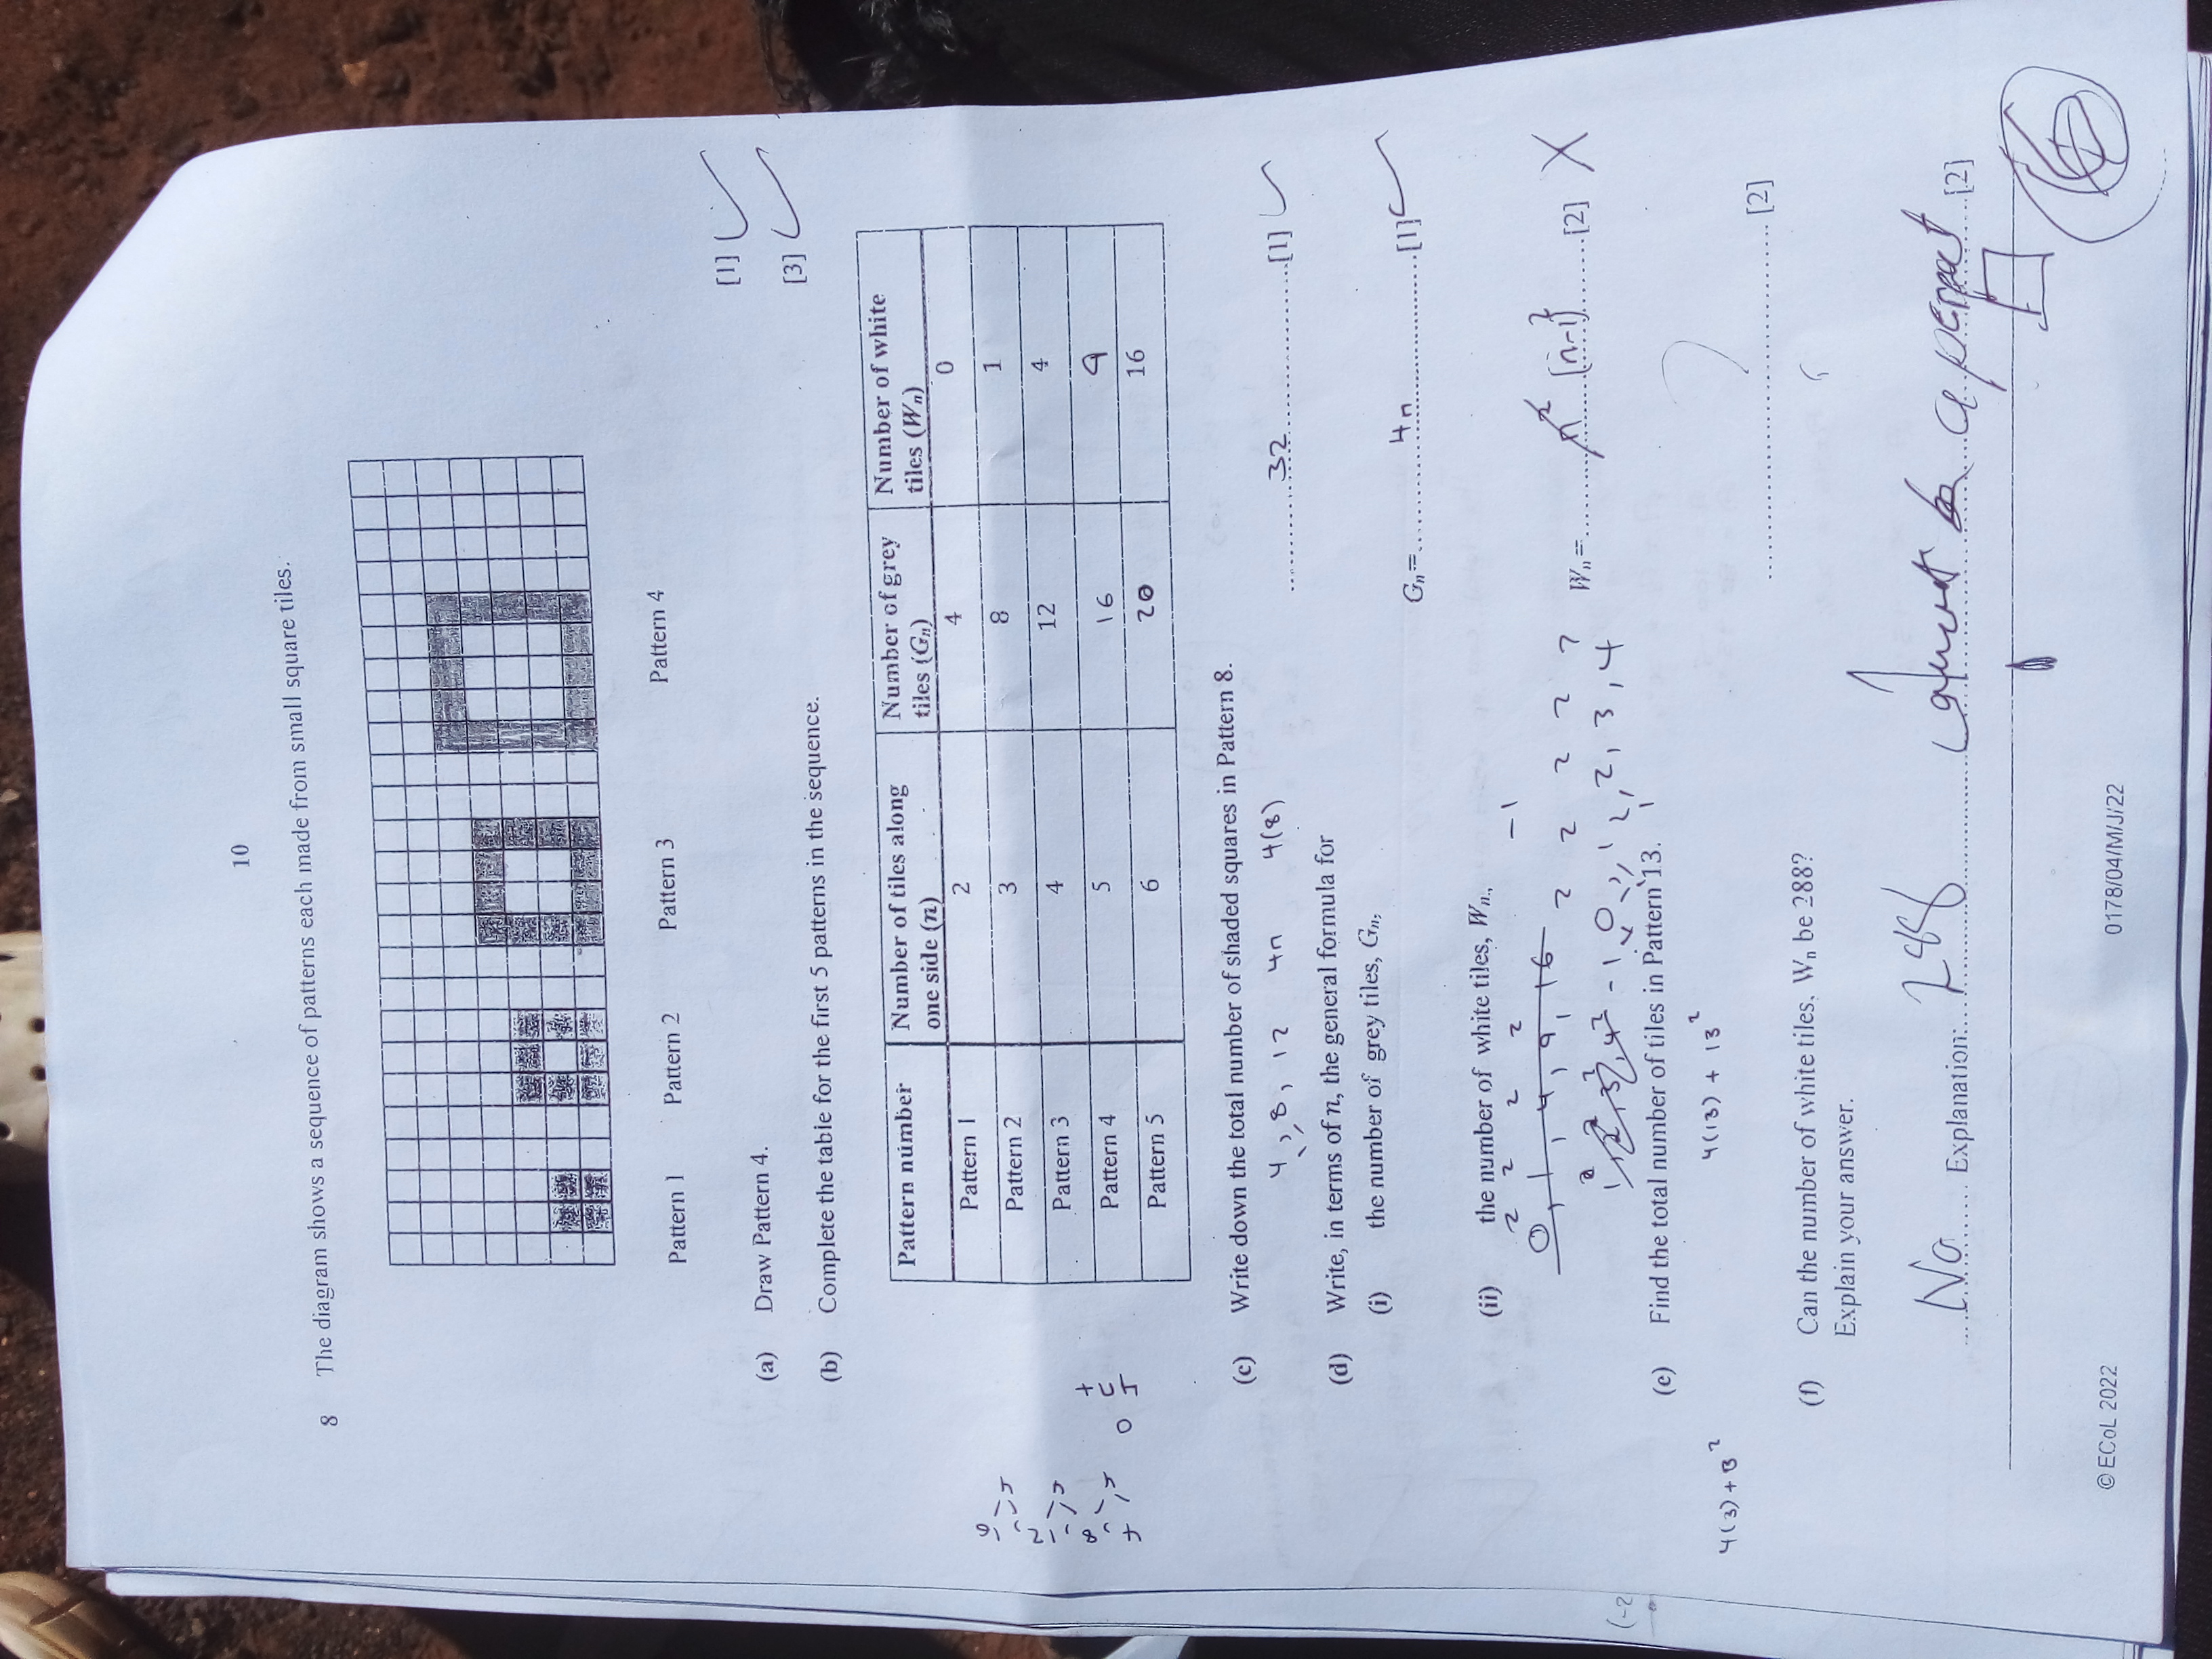 10
8 The diagram shows a sequence of patterns each made from small square tiles.
Pattern 1 Pattern 2 Pattern 3 Pattern 4
(a) Draw Pattern 4. [1]
(b) Complete the table for the first 5 patterns in the sequence. [3]
Pattern number Number of tiles along one side (n) Number of grey tiles (Gn) Number of white tiles (Wn)
Pattern 1 2 4 0
Pattern 2 3 8 1
Pattern 3 4 12 4
Pattern 4 5 16 9
Pattern 5 6 20 16
4, 8, 12, 16
4 4 4
4n+
0
(c) Write down the total number of shaded squares in Pattern 8.
4, 8, 12 4n 4(8)
32 [1]
(d) Write, in terms of n, the general formula for
(i) the number of grey tiles, Gn,
Gn= 4n [1]
(ii) the number of white tiles, Wn,
2 2 2 2 -1
0, 1, 4, 9, 16 2 2 2 2 2
Wn= n² (n-1)² [2]
1², 2², 3², 4² -1 0, 1, 2, 3, 4
1
(-2
(e) Find the total number of tiles in Pattern 13.
4(13) + 13²
4(3) + 3²
[2]
(f) Can the number of white tiles, Wn be 288?
Explain your answer.
No Explanation: 288 a [2]
© ECoL 2022
0178/04/M/J/22